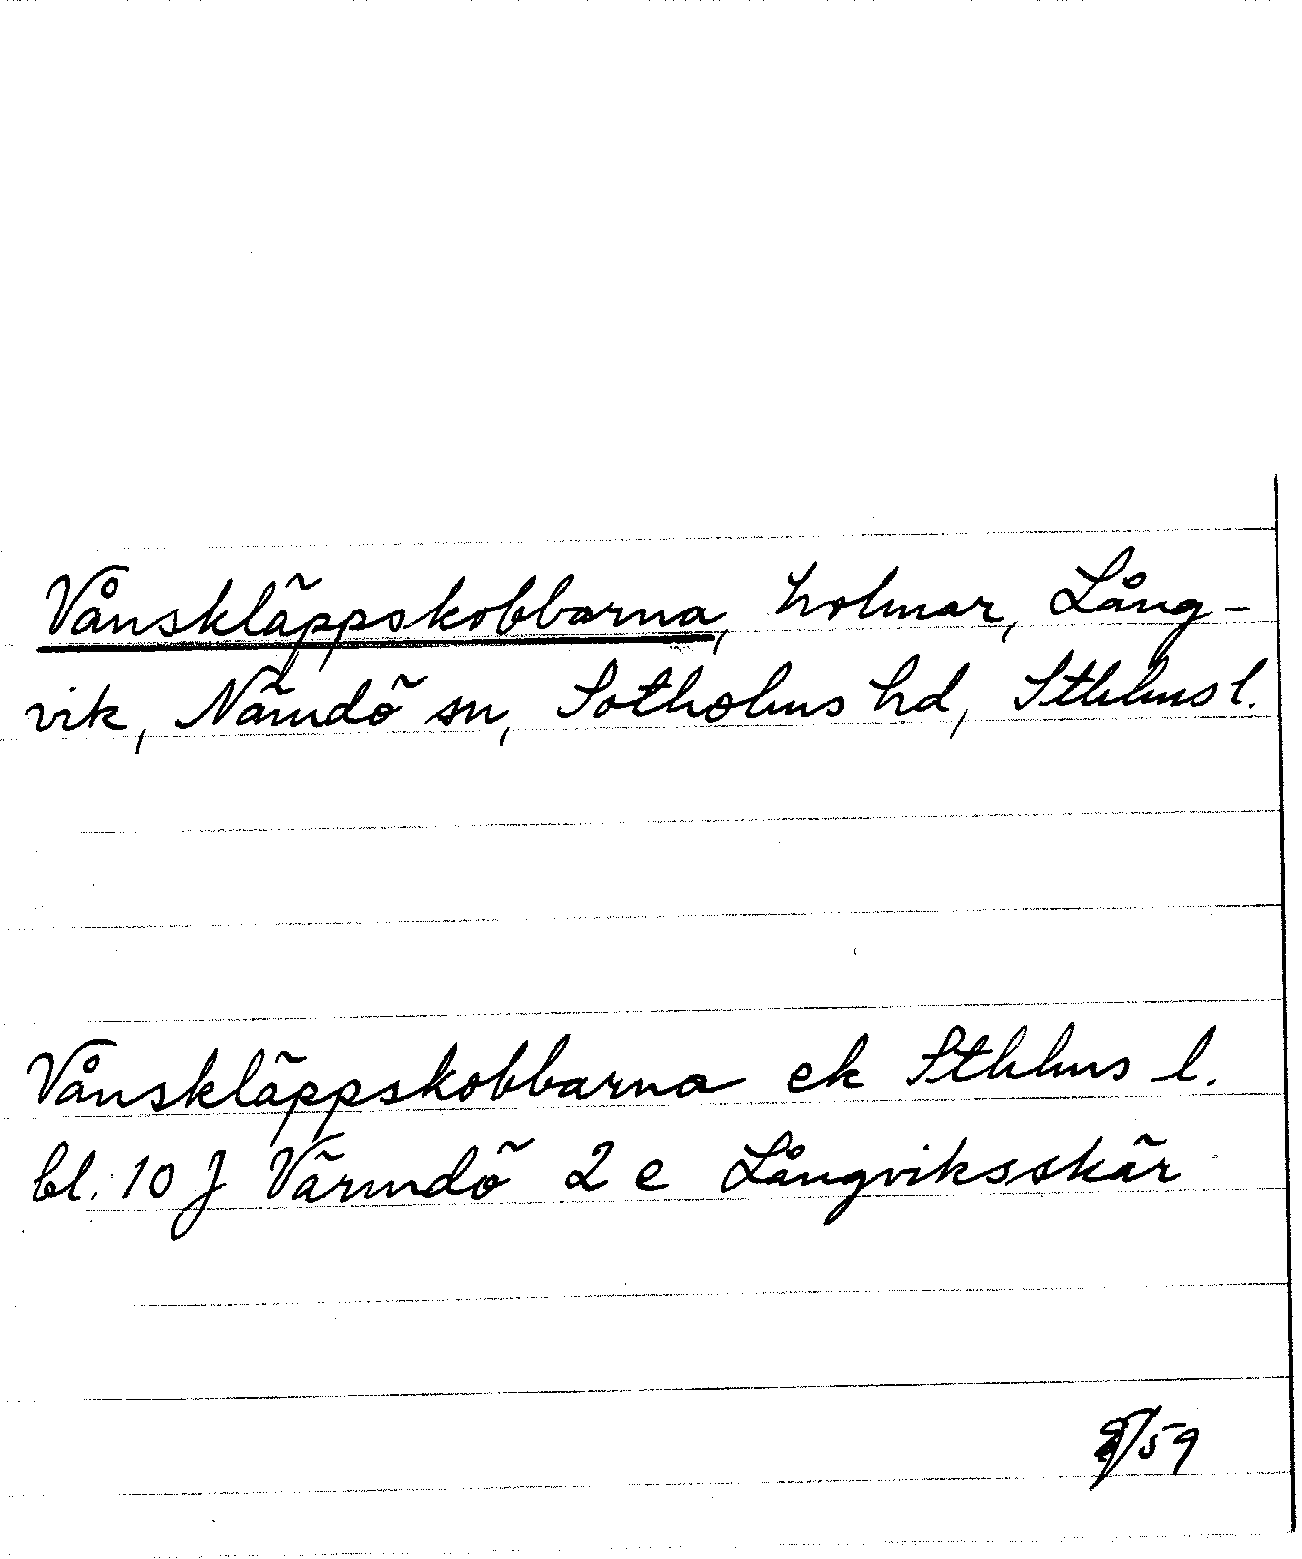 Vånskläppskobbarna, holmar, Lång-
vik, Nämdö sn, Sotholms hd, Sthlms l.
Vånskläppskobbarna ek Sthlms l.
bl. 10 J Värmdö 2 e Långviksskär
/59